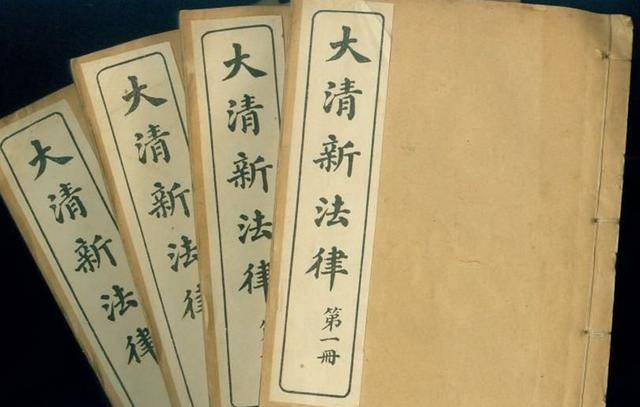 大清新法律
大清新法律
大清新法律
大清新法律 第一冊